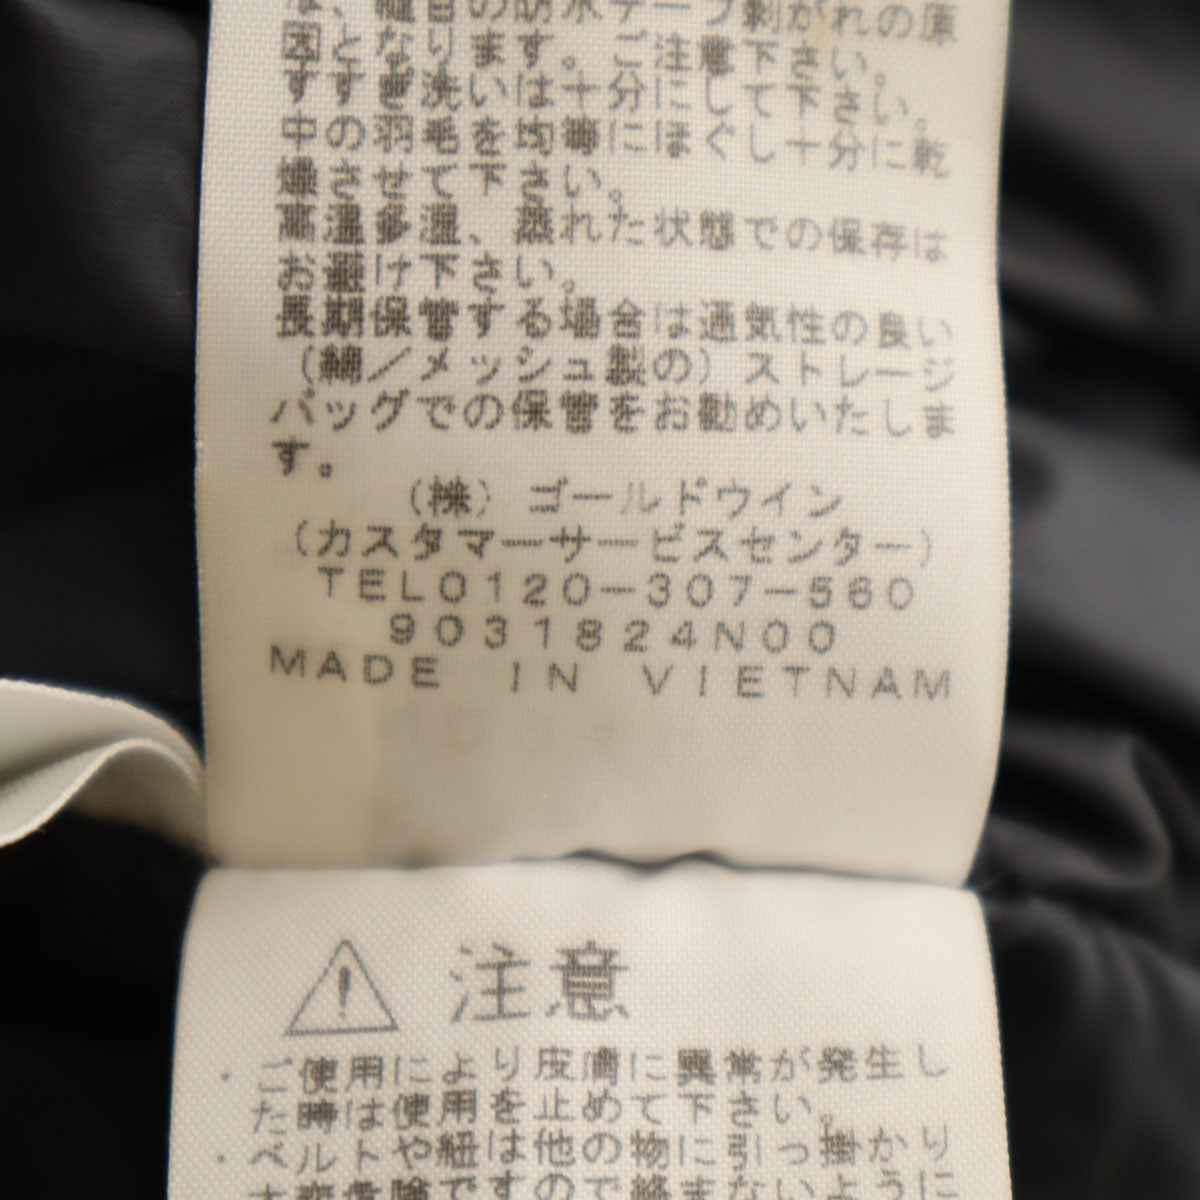 縫目の防水テープ剥がれの原
因となります。ご注意下さい。
すすぎ洗いは十分にして下さい。
中の羽毛を均等にほぐし十分に乾
燥させて下さい。
高温多湿、濡れた状態での保存は
お避け下さい。
長期保管する場合は通気性の良い
(綿／メッシュ製の)ストレージ
バッグでの保管をお勧めいたしま
す。
(株)ゴールドウイン
(カスタマーサービスセンター)
TEL0120-307-560
9031824N00
MADE IN VIETNAM
注意
・ご使用により皮膚に異常が発生し
た時は使用を止めて下さい。
・ベルトや紐は他の物に引っ掛かり
大変危険ですので絡まないように